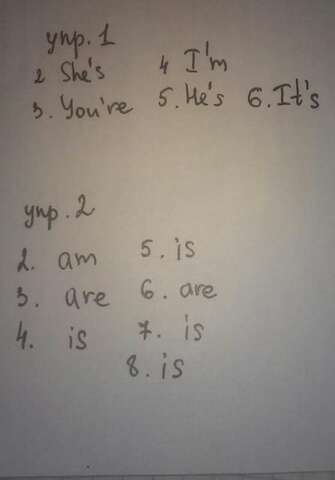 упр. 1
2 She's 4 I'm
3. You're 5. He's 6. It's
упр. 2
2. am 5. is
3. are 6. are
4. is 7. is
8. is